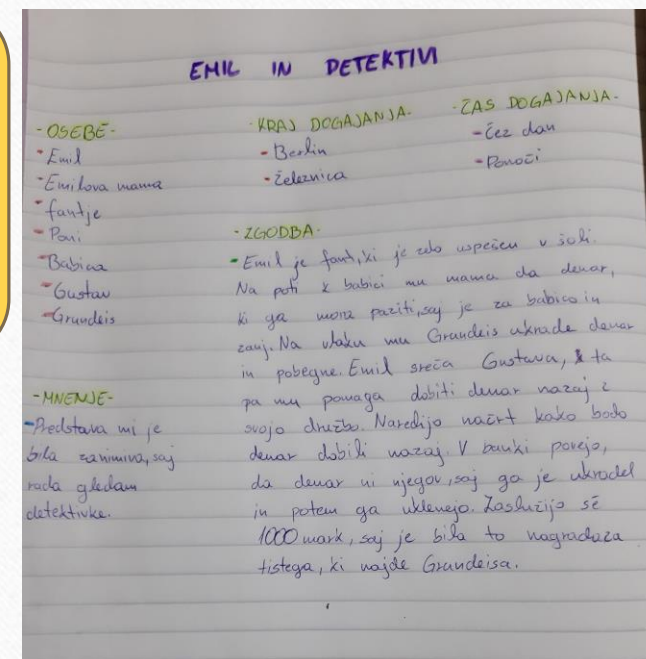 EMIL IN DETEKTIVI
-OSEBE-
-Emil
-Emilova mama
-fantje
-Poni
-Babica
-Gustav
-Grundeis
-MNENJE-
-Predstava mi je
bila zanimiva, saj
rada gledam
detektivke.
-KRAJ DOGAJANJA-
-Berlin
-železnica
-ČAS DOGAJANJA-
-Čez dan
-Ponoči
-ZGODBA-
-Emil je fant, ki je zelo uspešen v šoli.
Na poti k babici mu mama da denar,
ki ga mora paziti, saj je za babico in
zanj. Na vlaku mu Grundeis ukrade denar
in pobegne. Emil sreča Gustava, ta
pa mu pomaga dobiti denar nazaj z
svojo družbo. Naredijo načrt kako bodo
denar dobili nazaj. V banki povejo,
da denar ni njegov, saj ga je ukradel
in potem ga uklenejo. Zaslužijo še
1000 mark, saj je bila to nagrada za
tistega, ki najde Grundeisa.